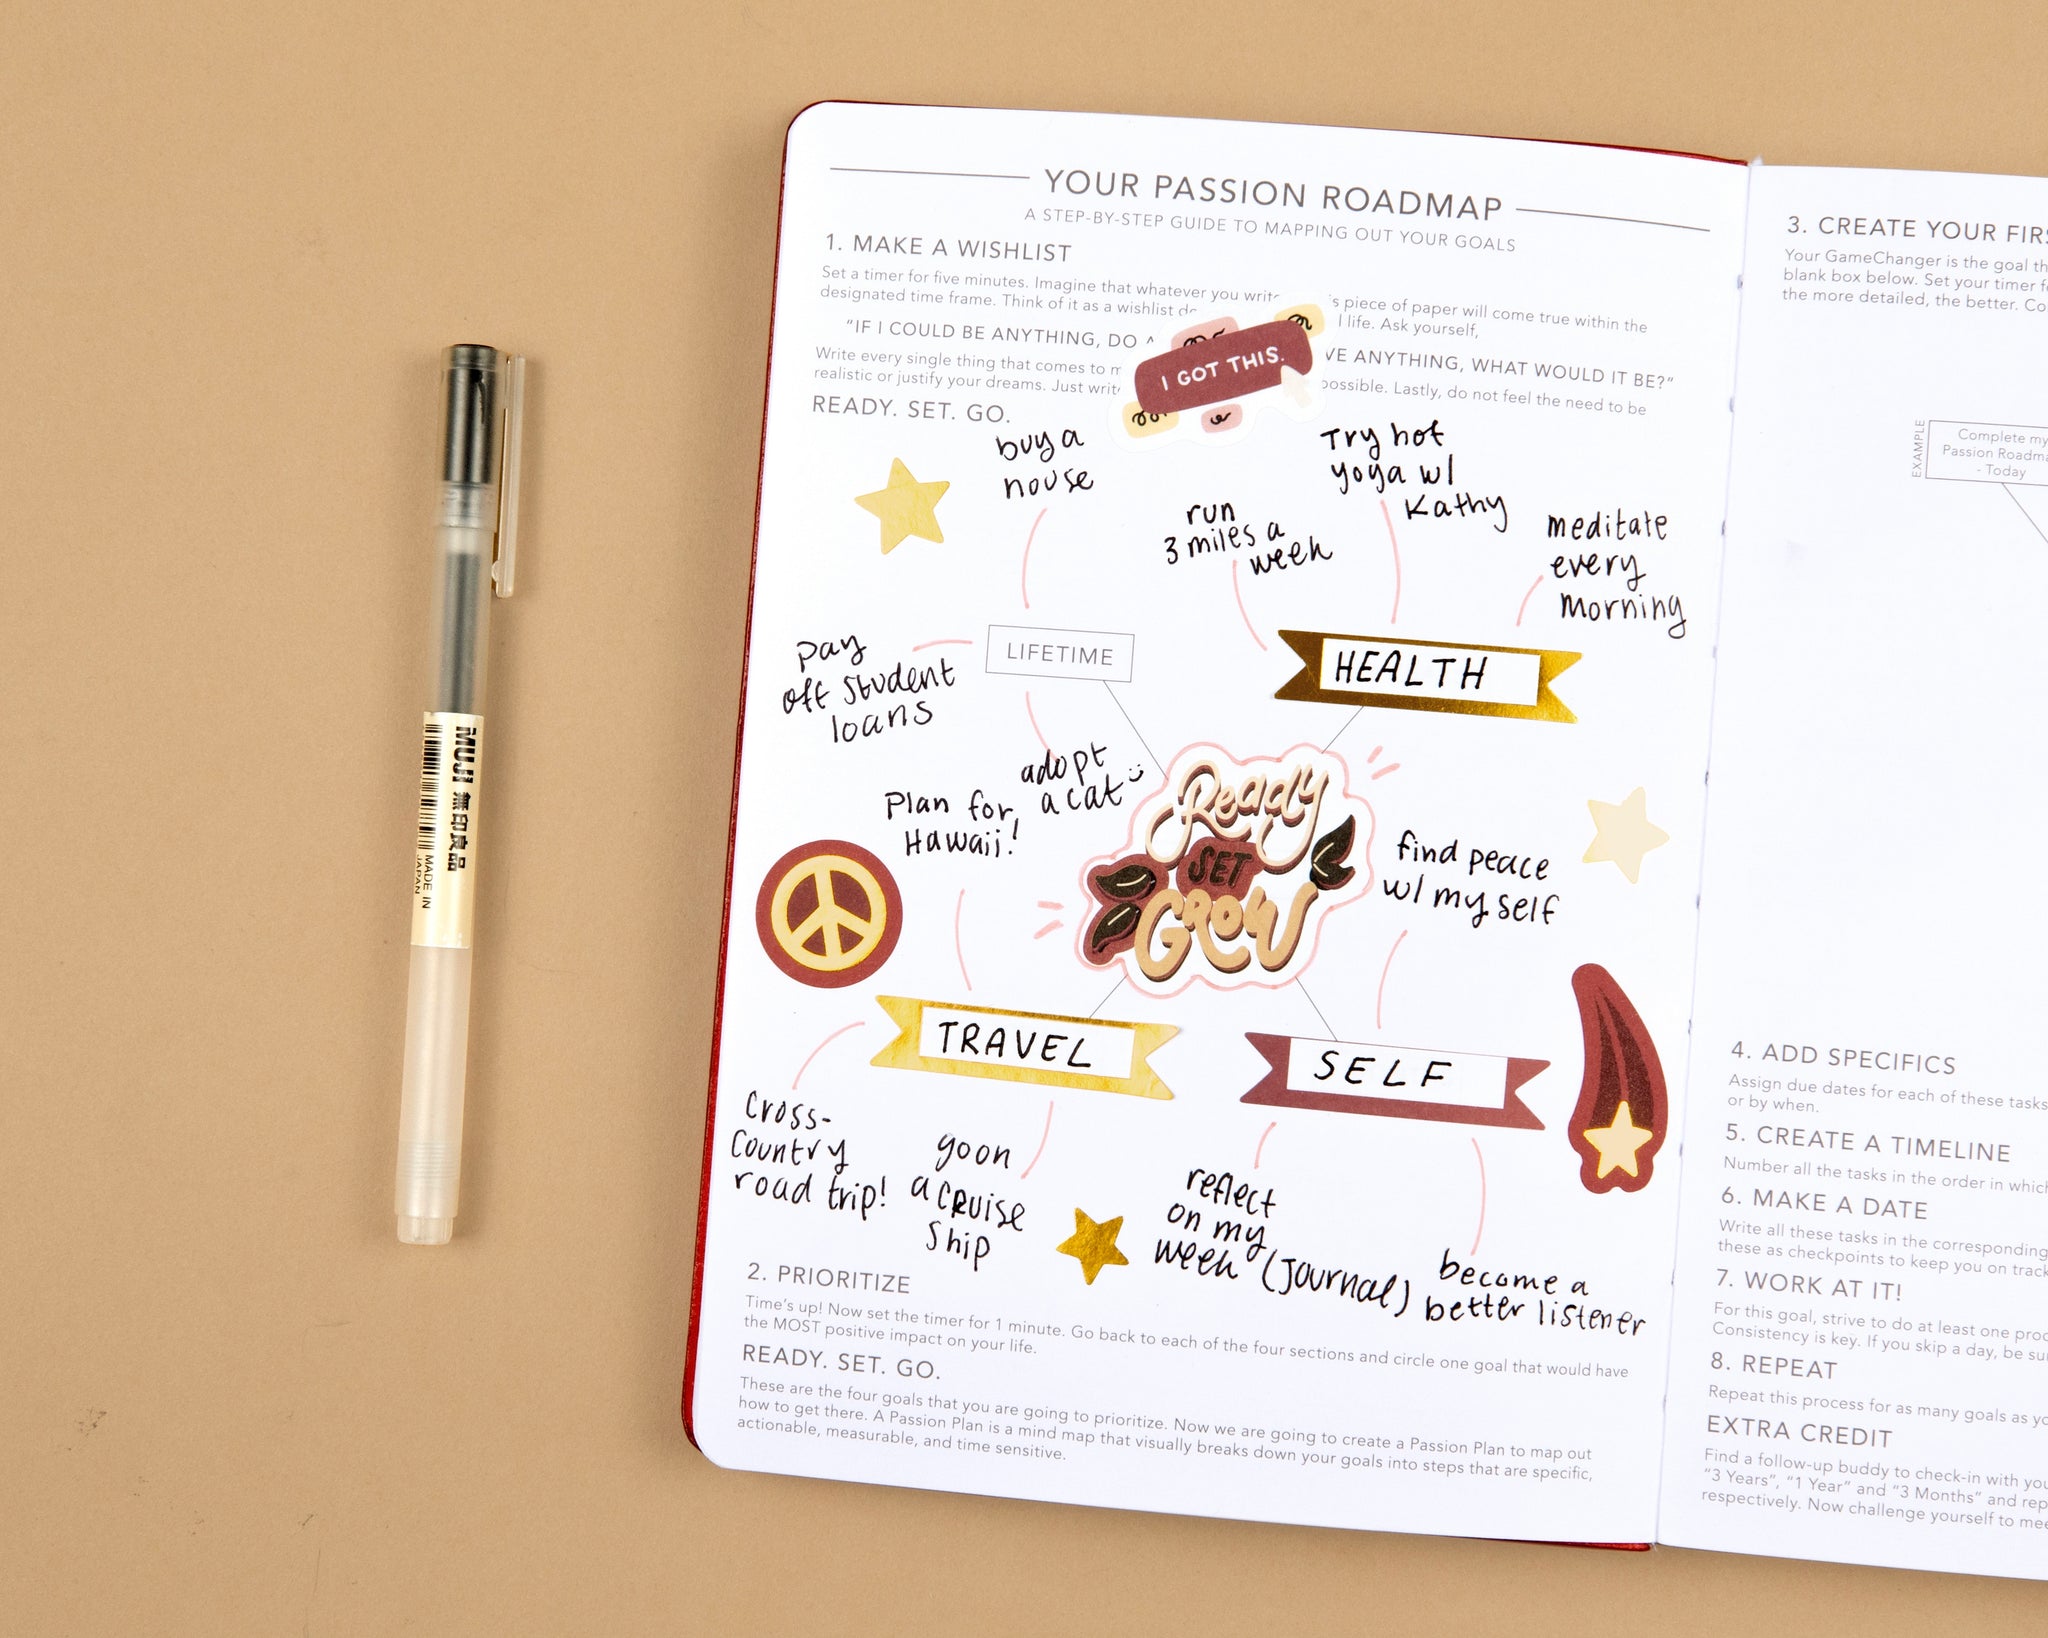 YOUR PASSION ROADMAP
A STEP-BY-STEP GUIDE TO MAPPING OUT YOUR GOALS
1. MAKE A WISHLIST
Set a timer for five minutes. Imagine that whatever you write
is piece of paper will come true within the
designated time frame. Think of it as a wishlist
life. Ask yourself,
"IF I COULD BE ANYTHING, DO
ANYTHING, WHAT WOULD IT BE?"
Write every single thing that comes to
possible. Lastly, do not feel the need to be
realistic or justify your dreams. Just write
READY. SET. GO.
I GOT THIS.
buy a
house
Try hot
yoga w/
Kathy
run
3 miles a
week
meditate
every
morning
LIFETIME
pay
off student
loans
adopt
a cat
HEALTH
Plan for
Hawaii!
Ready
SET
GROW
find peace
w/ my self
TRAVEL
SELF
Cross-
Country
road trip!
go on
a cruise
ship
reflect
on my
week (journal)
become a
better listener
2. PRIORITIZE
Time's up! Now set the timer for 1 minute. Go back to each of the four sections and circle one goal that would have
the MOST positive impact on your life.
READY. SET. GO.
These are the four goals that you are going to prioritize. Now we are going to create a Passion Plan to map out
how to get there. A Passion Plan is a mind map that visually breaks down your goals into steps that are specific,
actionable, measurable, and time sensitive.
3. CREATE YOUR
Your GameChanger is the goal
blank box below. Set your timer
the more detailed, the better.
EXAMPLE
Complete my
Passion
- Today
4. ADD SPECIFICS
Assign due dates for each of these tasks
or by when.
5. CREATE A TIMELINE
Number all the tasks in the order in which
6. MAKE A DATE
Write all these tasks in the corresponding
these as checkpoints to keep you on track
7. WORK AT IT!
For this goal, strive to do at least one
Consistency is key. If you skip a day, be
8. REPEAT
Repeat this process for as many goals as
EXTRA CREDIT
Find a follow-up buddy to check-in with
"3 Years", "1 Year" and "3 Months" and
respectively. Now challenge yourself to
MUJI 無印良品
MADE IN
JAPAN